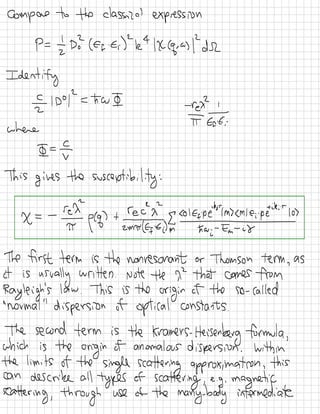 Compare to the classical expression
P = 1/2 D₀² (ε_f·ε_i)² k⁴ |χ(q,ω)|² dΩ
Identify
c/2 |D⁰|² = ħω Φ
where
Φ = c/V
This gives the susceptibility:
χ = − r_e λ²/π ρ(q) +
The first term is the nonresonant or Thomson term, as
it is usually written. Note the λ² that comes from
Rayleigh's law. This is the origin of the so-called
"normal" dispersion of optical constants.
The second term is the Kramers-Heisenberg formula,
which is the origin of anomalous dispersion. Within
the limits of the single scattering approximation, this
can describe all types of scattering, e.g. magnetic
scattering, through use of the many-body intermediate